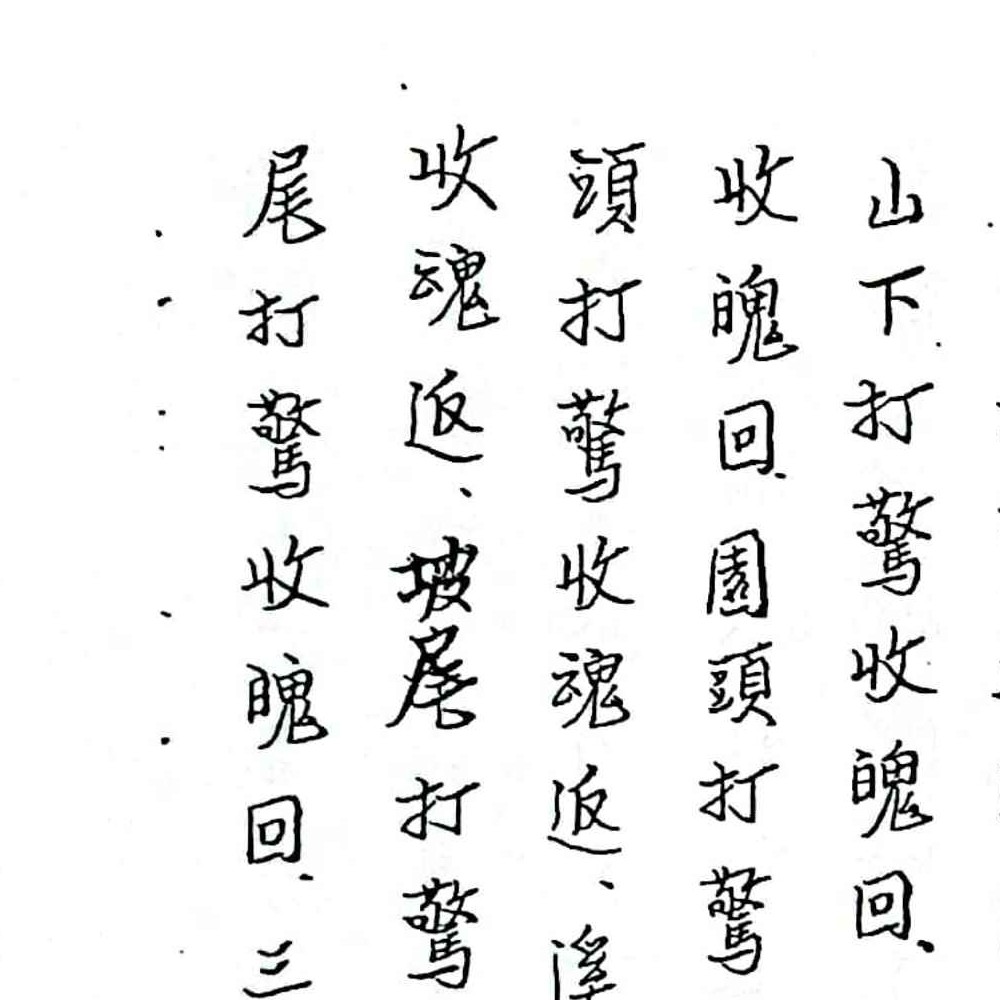 山下打驚收魄回、
收魄回、園頭打驚
頭打驚收魂返、溪
收魂返、坡尾打驚
尾打驚收魄回、三